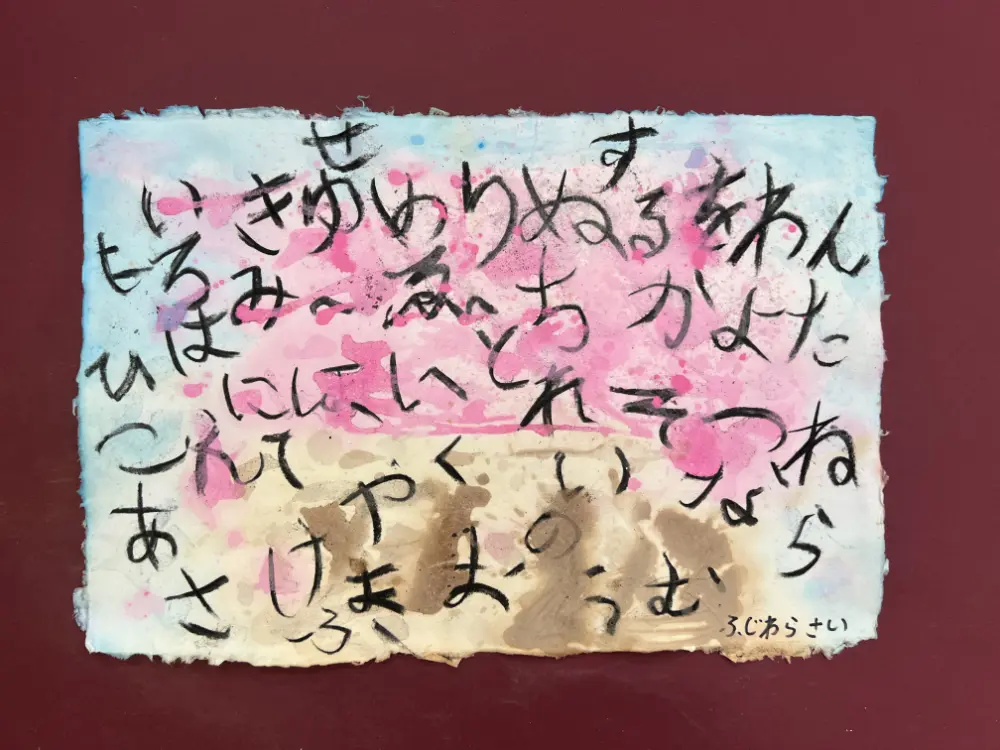 せ す
いきゆめりぬるをわん
ろみゑちかよた
は
ひにほいへとれそつね
えてくいなら
あやの
さけまおうむ
ふ
ふじわらさい